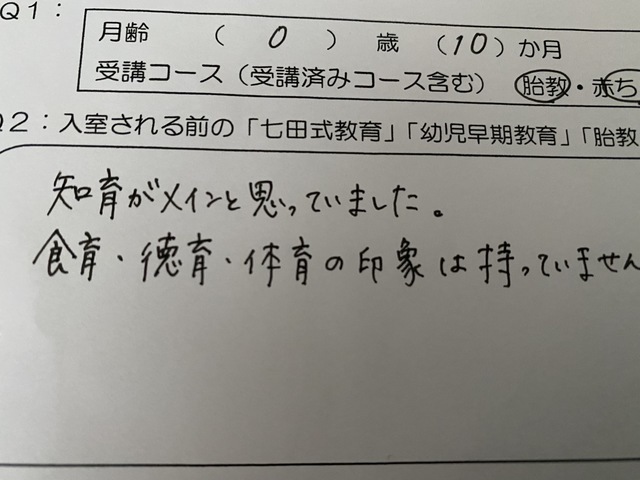 Q1：
月齢　（ 0 ）歳（10）か月
受講コース（受講済みコース含む）　胎教・赤ち
Q2：入室される前の「七田式教育」「幼児早期教育」「胎教
知育がメインと思っていました。
食育・徳育・体育の印象は持っていません